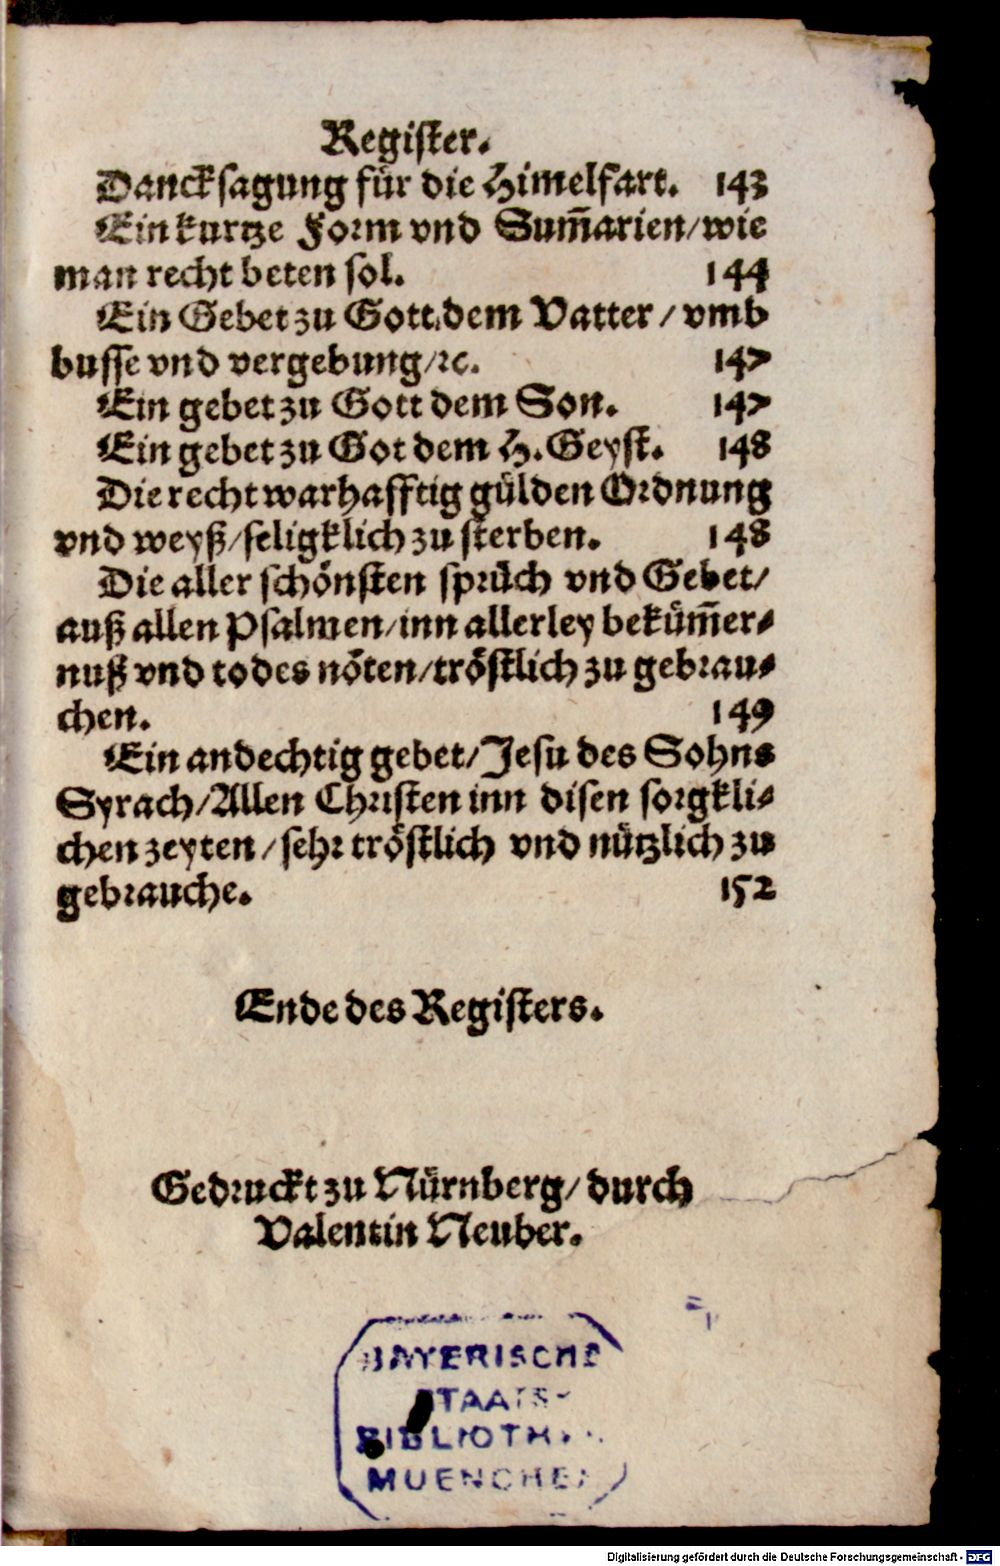 Register.
Dancksagung für die Himelfart. 143
Ein kurtze Form vnd Sum̄arien/wie
man recht beten sol. 144
Ein Gebet zu Gott dem Vatter / vmb
busse vnd vergebung/ꝛc. 147
Ein gebet zu Gott dem Son. 147
Ein gebet zu Got dem H. Geyst. 148
Die recht warhafftig gülden Ordnung
vnd weyß/seligklich zu sterben. 148
Die aller schönsten sprüch vnd Gebet/
auß allen Psalmen/inn allerley beküm̄er⸗
nuß vnd todes nöten/tröstlich zu gebrau⸗
chen. 149
Ein andechtig gebet/Jesu des Sohns
Syrach/Allen Christen inn disen sorgkli⸗
chen zeyten / sehr tröstlich vnd nützlich zu
gebrauche. 152
Ende des Registers.
Gedruckt zu Nürnberg/ durch
Valentin Neuber.
BAYERISCHE
STAATS-
BIBLIOTHEK
MUENCHEN
Digitalisierung gefördert durch die Deutsche Forschungsgemeinschaft - DFG